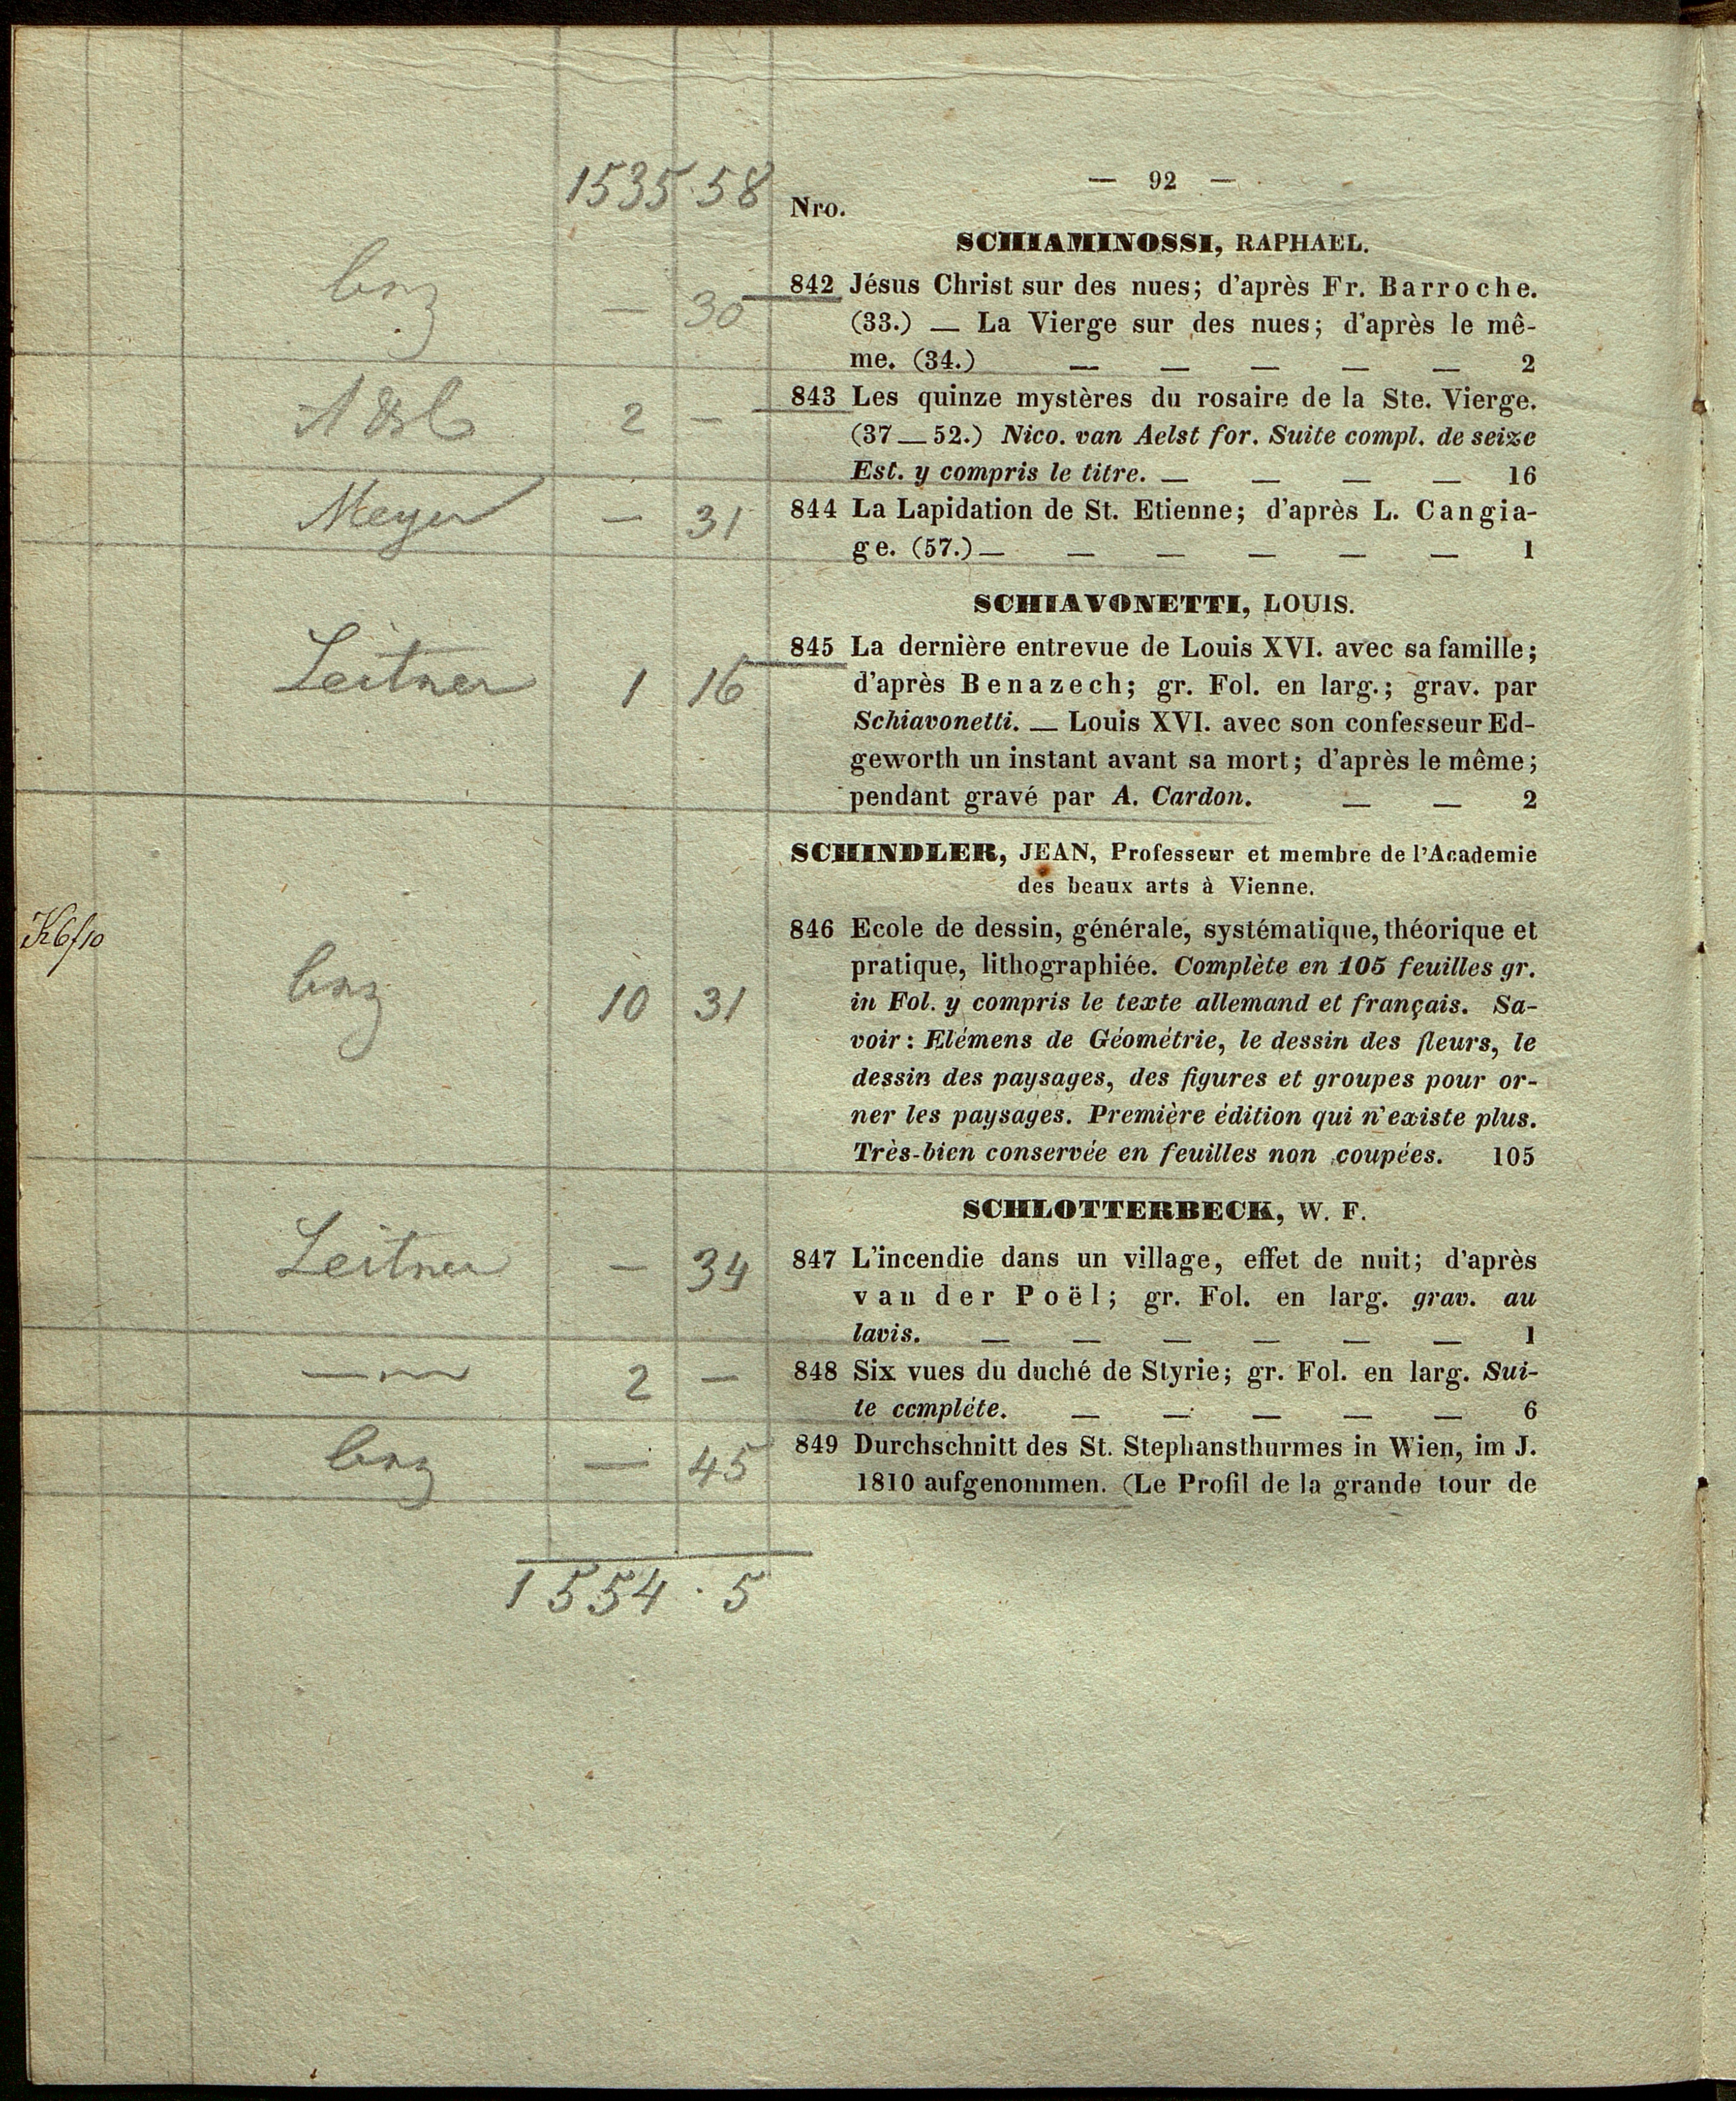 — 92 —
1535 · 58
Nro.
SCHIAMINOSSI, RAPHAEL.
— 30
842 Jésus Christ sur des nues; d'après Fr. Barroche.
(33.) — La Vierge sur des nues; d'après le mê-
me. (34.) — — — — — 2
2 —
843 Les quinze mystères du rosaire de la Ste. Vierge.
(37—52.) Nico. van Aelst for. Suite compl. de seize
Est. y compris le titre. — — — — 16
Meyer — 31
844 La Lapidation de St. Etienne; d'après L. Cangia-
ge. (57.) — — — — — — 1
SCHIAVONETTI, LOUIS.
Leitner 1 16
845 La dernière entrevue de Louis XVI. avec sa famille;
d'après Benazech; gr. Fol. en larg.; grav. par
Schiavonetti. — Louis XVI. avec son confesseur Ed-
geworth un instant avant sa mort; d'après le même;
pendant gravé par A. Cardon. — — 2
SCHINDLER, JEAN, Professeur et membre de l'Academie
des beaux arts à Vienne.
10 31
846 Ecole de dessin, générale, systématique, théorique et
pratique, lithographiée. Complète en 105 feuilles gr.
in Fol. y compris le texte allemand et français. Sa-
voir: Elémens de Géométrie, le dessin des fleurs, le
dessin des paysages, des figures et groupes pour or-
ner les paysages. Première édition qui n'existe plus.
Très-bien conservée en feuilles non coupées. 105
SCHLOTTERBECK, W. F.
Leitner — 34
847 L'incendie dans un village, effet de nuit; d'après
van der Poël; gr. Fol. en larg. grav. au
lavis. — — — — — — 1
2 —
848 Six vues du duché de Styrie; gr. Fol. en larg. Sui-
te complète. — — — — — 6
— 45
849 Durchschnitt des St. Stephansthurmes in Wien, im J.
1810 aufgenommen. (Le Profil de la grande tour de
1554 · 5